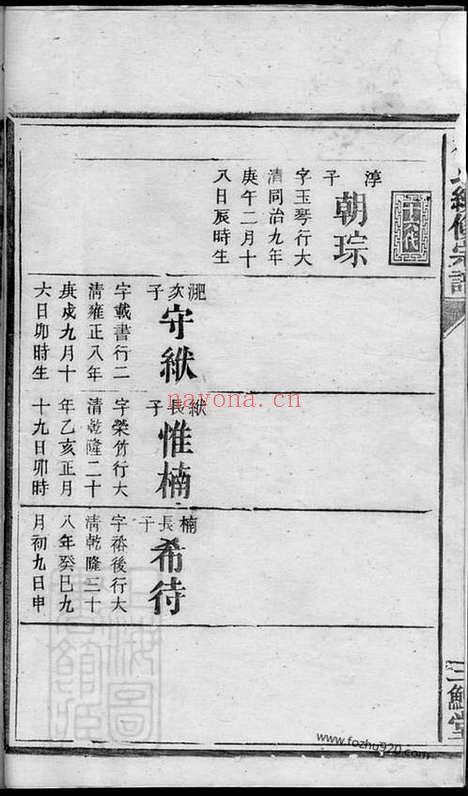 淳子
朝琮
字玉琴行大
清同治九年
庚午二月十
八日辰時生
淝次子
守紱
字載書行二
清雍正八年
庚戌九月十
六日卯時生
紱長子
惟楠
字榮竹行大
清乾隆二十
年乙亥正月
十九日卯時
楠長子
希待
字裕後行大
清乾隆三十
八年癸巳九
月初九日申
續修宗譜
三鱣堂
nayona.cn
www.fozhu920.com